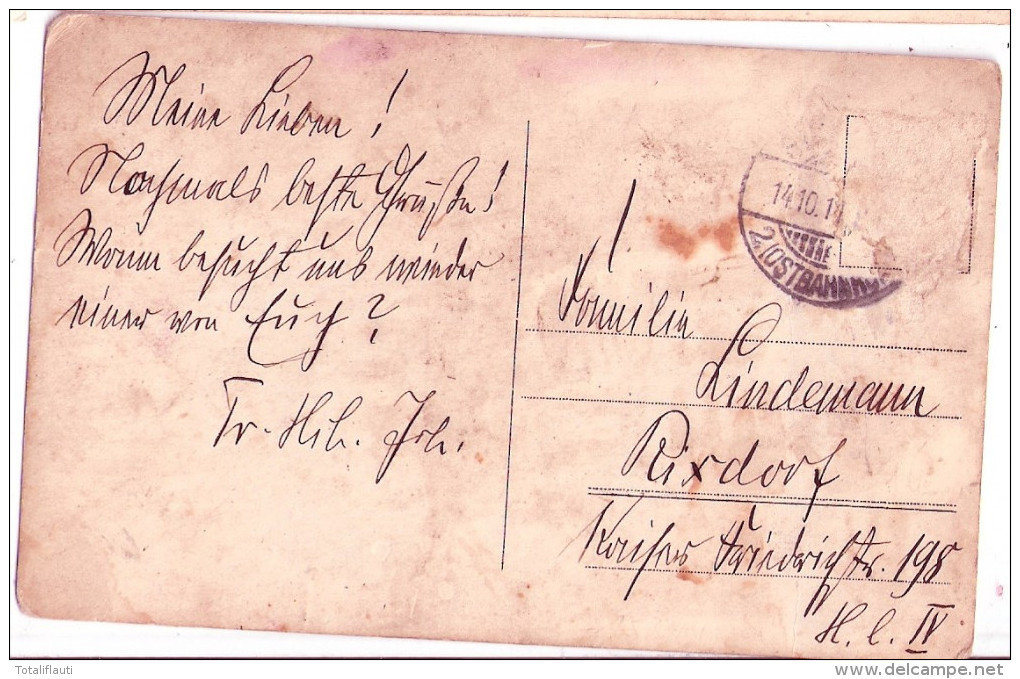 Meine Lieben!
Nochmals beste Grüße!
Wann besucht uns wieder
einer von Euch?
Fr. Hib.
14.10.1
2 (OSTBAHNH
Familie
Lindemann
Rixdorf
Kaiser Friedrichstr. 198
H. l. IV
Totaliflauti
www.delcampe.net